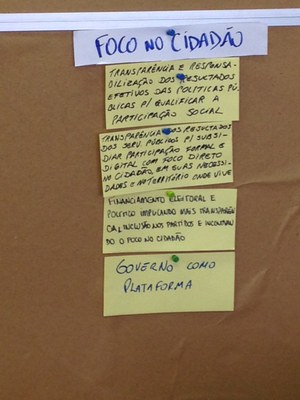 FOCO NO CIDADÃO
TRANSPARÊNCIA E RESPONSA-
BILIZAÇÃO DOS RESULTADOS
EFETIVOS DAS POLÍTICAS PÚ-
BLICAS P/ QUALIFICAR A
PARTICIPAÇÃO SOCIAL
TRANSPARÊNCIA DOS RESULTADOS
DOS SERV. PÚBLICOS P/ SUBSI-
DIAR PARTICIPAÇÃO FORMAL E
DIGITAL COM FOCO DIRETO
NO CIDADÃO, EM SUAS NECESSI-
DADES E NO TERRITÓRIO ONDE VIVE
FINANCIAMENTO ELEITORAL E
POLÍTICO IMPLICANDO MAIS TRANSPARÊN
CIA, INCLUSÃO NOS PARTIDOS E
DO O FOCO NO CIDADÃO
GOVERNO COMO
PLATAFORMA